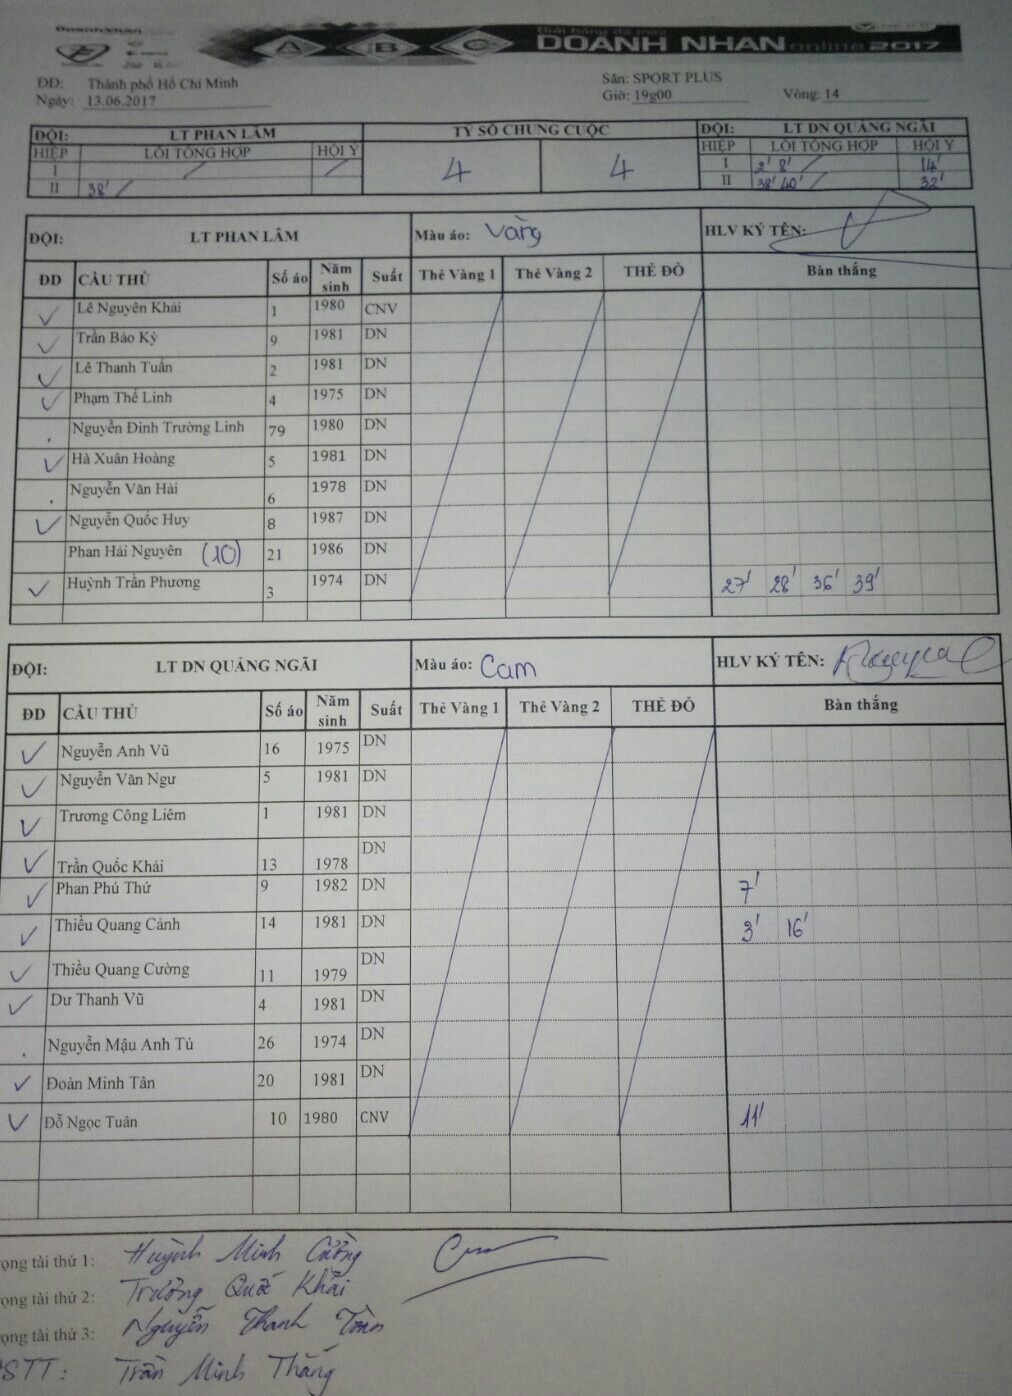 DoanhNhân
A B C
Giải bóng đá mini
DOANH NHAN online 2017
ĐĐ: Thành phố Hồ Chí Minh
Sân: SPORT PLUS
Ngày: 13.06.2017
Giờ: 19g00
Vòng: 14
ĐỘI: LT PHAN LÂM
TỶ SỐ CHUNG CUỘC
ĐỘI: LT DN QUẢNG NGÃI
HIỆP LỖI TỔNG HỢP HỘI Ý
4 4
HIỆP LỖI TỔNG HỢP HỘI Ý
I / /
I 2' 8' / 14'
II 38' /
II 38' 40' / 32'
ĐỘI: LT PHAN LÂM Màu áo: Vàng HLV KÝ TÊN:
ĐD CẦU THỦ Số áo Năm sinh Suất Thẻ Vàng 1 Thẻ Vàng 2 THẺ ĐỎ Bàn thắng
✓ Lê Nguyên Khải 1 1980 CNV
✓ Trần Bảo Kỳ 9 1981 DN
✓ Lê Thanh Tuấn 2 1981 DN
✓ Phạm Thế Linh 4 1975 DN
. Nguyễn Đinh Trường Linh 79 1980 DN
✓ Hà Xuân Hoàng 5 1981 DN
. Nguyễn Văn Hải 6 1978 DN
✓ Nguyễn Quốc Huy 8 1987 DN
Phan Hải Nguyên (10) 21 1986 DN
✓ Huỳnh Trần Phương 3 1974 DN 27' 28' 36' 39'
ĐỘI: LT DN QUẢNG NGÃI Màu áo: Cam HLV KÝ TÊN:
ĐD CẦU THỦ Số áo Năm sinh Suất Thẻ Vàng 1 Thẻ Vàng 2 THẺ ĐỎ Bàn thắng
✓ Nguyễn Anh Vũ 16 1975 DN
✓ Nguyễn Văn Ngư 5 1981 DN
✓ Trương Công Liêm 1 1981 DN
✓ Trần Quốc Khải 13 1978 DN
✓ Phan Phú Thứ 9 1982 DN 7'
✓ Thiều Quang Cảnh 14 1981 DN 3' 16'
✓ Thiều Quang Cường 11 1979 DN
✓ Dư Thanh Vũ 4 1981 DN
. Nguyễn Mậu Anh Tú 26 1974 DN
✓ Đoàn Minh Tân 20 1981 DN
✓ Đỗ Ngọc Tuân 10 1980 CNV 11'
ọng tài thứ 1: Huỳnh Minh Cường
ọng tài thứ 2: Trương Quốc Khải
ọng tài thứ 3: Nguyễn Thanh Toàn
STT: Trần Minh Thắng